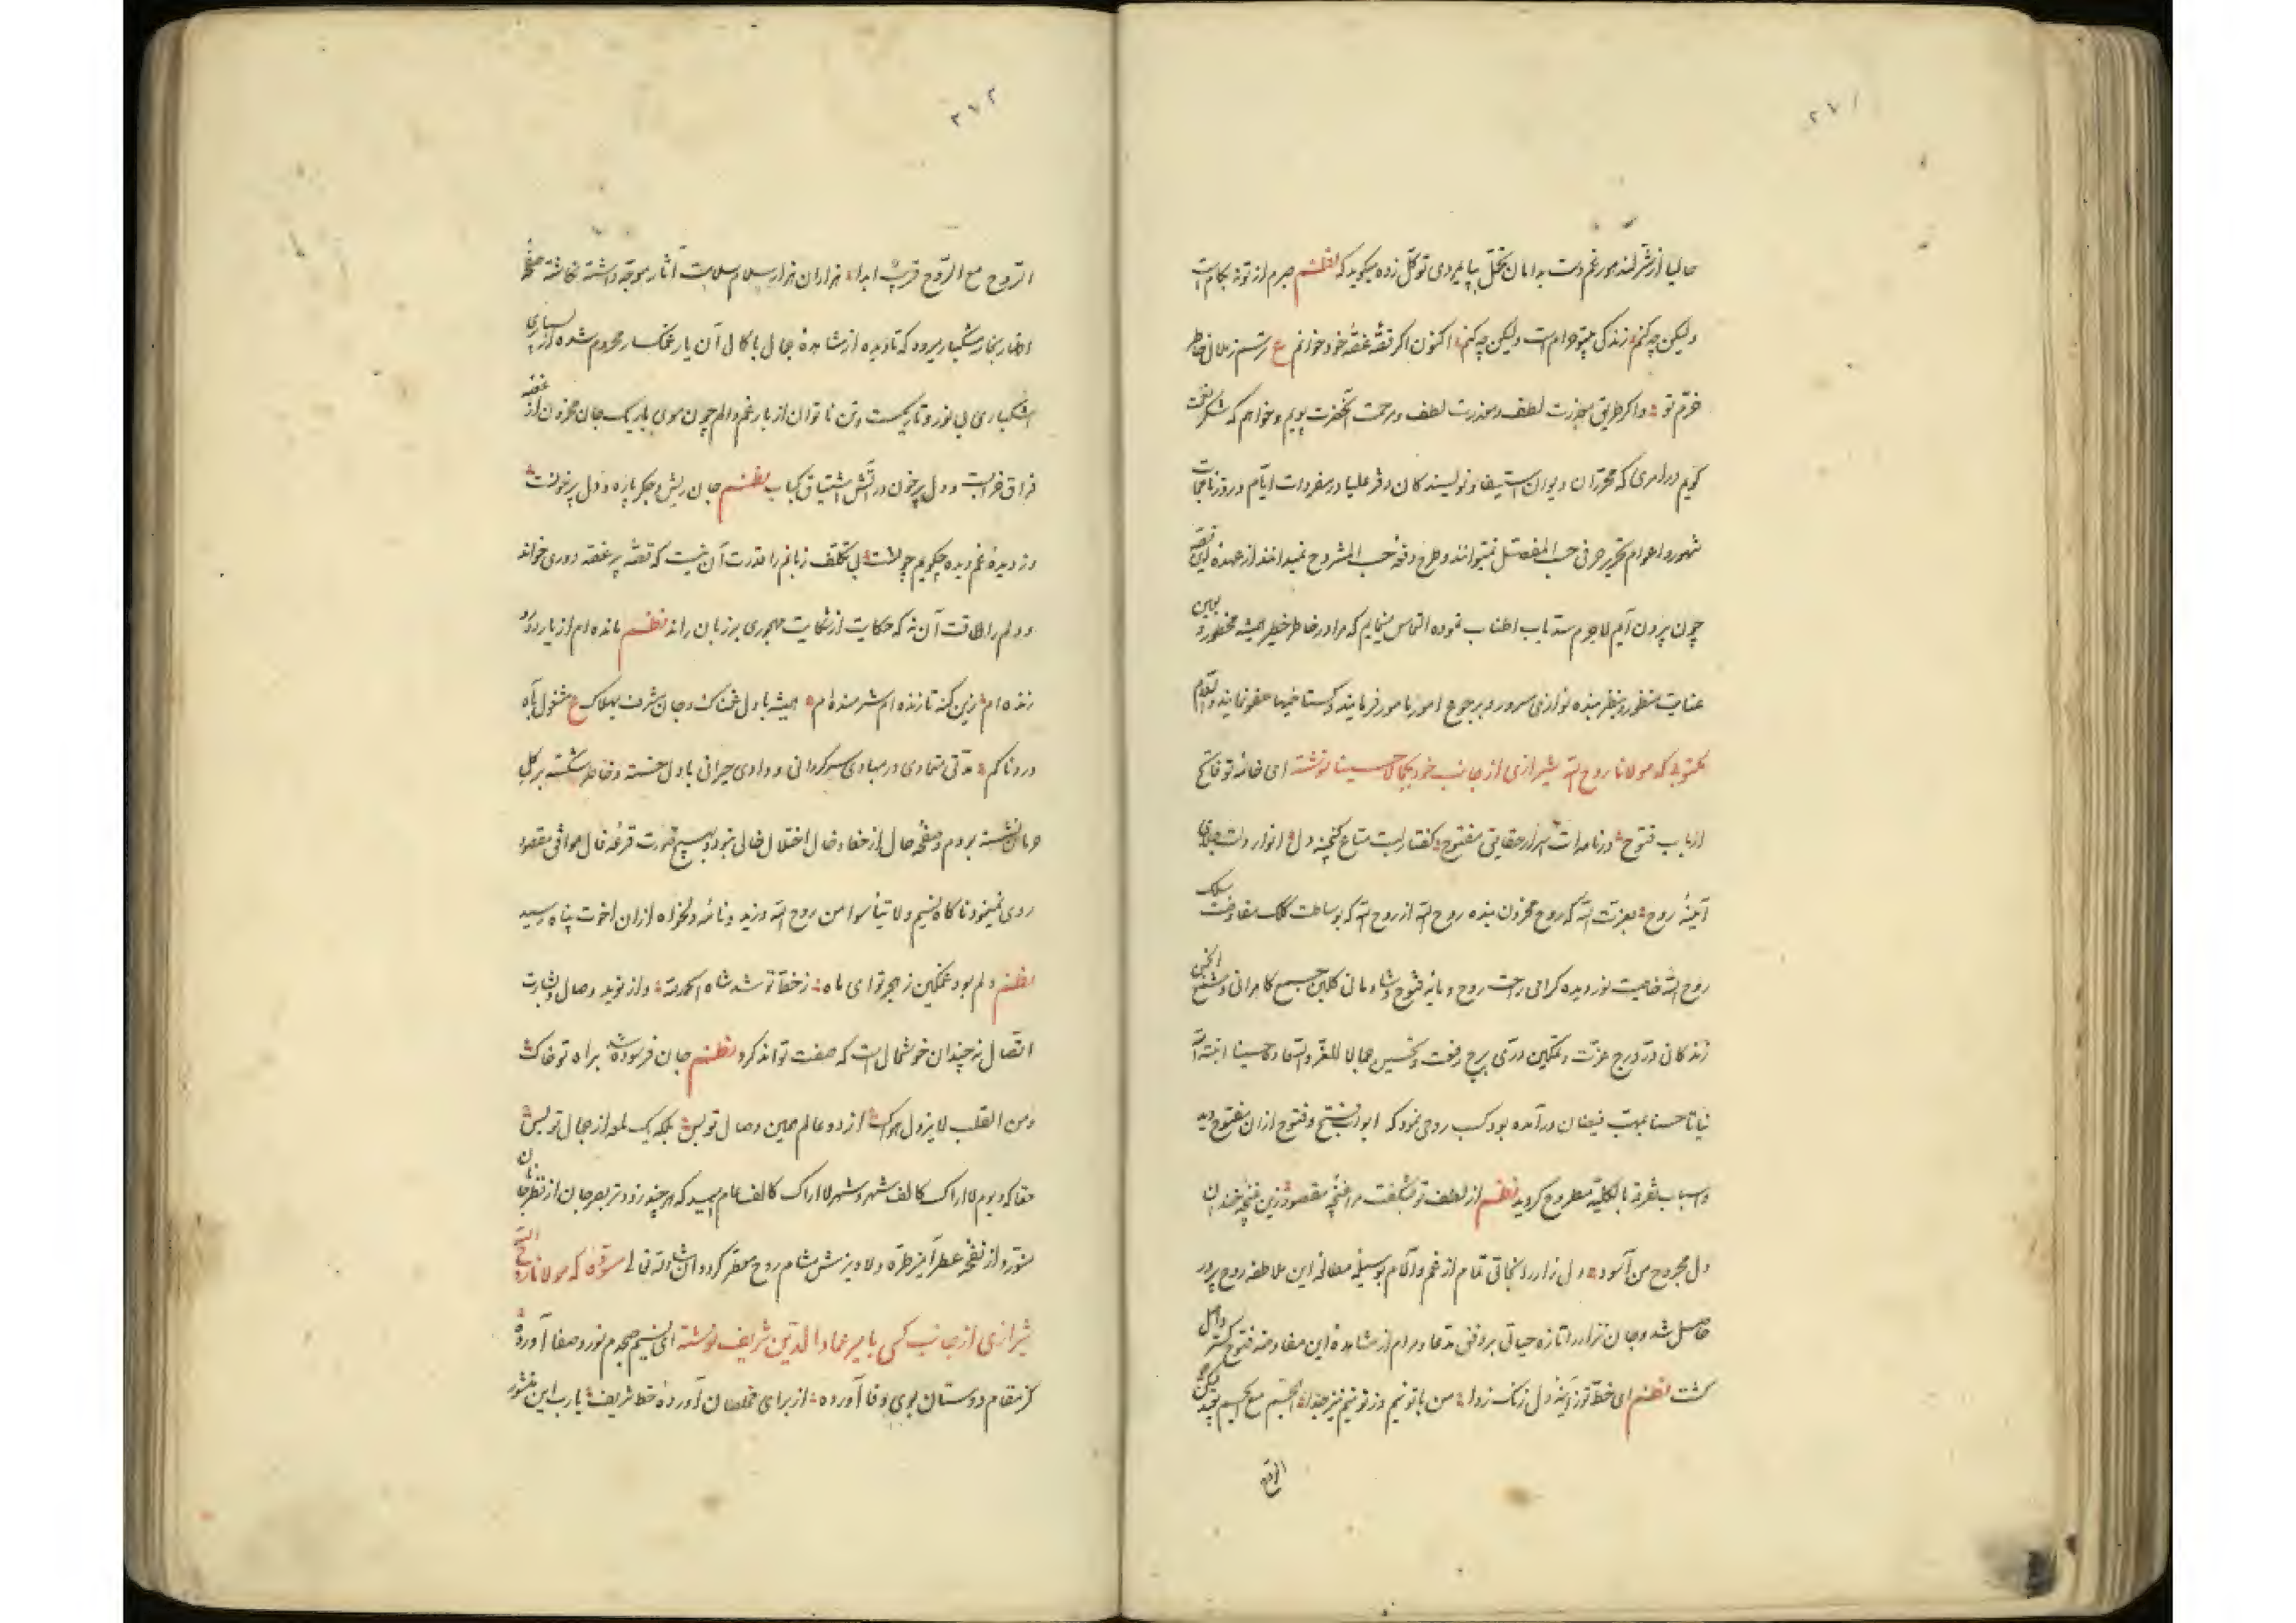 ۲۷۱
حالیا از شر لشکر غم دست بدامان تحمل بپایمردی توکل زده میگوید که نظم صبرم از تو نه بکام است
ولیکن چه کنم زندگی بیتو حرام است ولیکن چه کنم اکنون اگر قصّه غصّه خود خوانم ع ترسم ز ملال خاطر
خرّم تو و اگر طریق معذرت لطف و مرحمت آنحضرت پویم و خواهم که شکر نعمت
گویم در امری که محرّران دیوان استیفا و نویسندگان دفر علیا در مفردات ایّام و روزنامجات
شهور و اعوام تحریر حرفی حسب المفصّل نمیتوانند و طرح دفعهٔ حسب المشروح نمیدانند از عهده این قصّه
چون بیرون آیم لاجرم سدّ باب اطناب نموده التماس مینمایم که مرا در خاطر خطیر همیشه محظور و بعین
عنایت منظور و بنظر بنده نوازی مسرور و برجوع امور مامور فرمایند و گستاخیها عفو نمایند والسّلام
مکتوبی که مولانا روح الله شیرازی از جانب خود بکمالا حسینا نوشته ای خامهٔ تو فاتح
ارباب فتوح در نامه‌ات اسرار حقایق مفتوح گفتار لبت متاع گنجینه دل انوار دلت جلای
آیینهٔ روح بعزّت الله که روح محزون بنده روح الله از روح الله که بوساطت کلک مفاوضت سلک
روح الله خاصیت نور دیده گرامی راحت روح و مایه فتوح و شادمانی گلبن چمن کامرانی و شمع انجمن
زندگانی درّ درج عزّت و تمکین درّی برج رفعت و تحسین جمالا للعزّ والسّعاده حسینا انبته الله
نباتا حسنا بمهبّ فیضان درآمده بود کسب روحی نمود که ابواب بسته و فتوح از ان مفتوح دید
و اسباب تفرقه بالکلیّه مطروح گردید نظم از لطف تو بشکفت مرا غنچهٔ مقصود زین غنچه خندان
دل مجروح من آسود دل زار را نجاتی تمام از غم و آلام بوسیلهٔ مطالعهٔ این ملاطفه روح پرور
حاصل شد و جان نزار را تازه حیاتی بروفق مدعا و مرام از مشاهدهٔ این مفاوضه فتوح گستر واصل
گشت نظم ای خطّ تو ز آینهٔ دل زنگ زدا من با تو نیم و ز تو نیم نیز جدا الجسم مع الجسم بعید لکن
الروح
۲۷۲
الرّوح مع الرّوح قریب ابدا هزاران هزار سلام سلامت آثار موجّه داشته نگاشته صفحهٔ
اظهار بخار مشکبار میرود که تا دیده از مشاهدهٔ جمال با کمال آن یار غمگسار محروم شده از بسیاری
اشکباری بی نور و تاریکست و تن ناتوان از بار غم و الم چون موی باریک جان محزون از غصّه
فراق خرابست و دل پرخون در آتش اشتیاق کباب نظم جان ریش و جگر پاره و دل پرخونست
وز دیدهٔ غم دیده چگویم چونست بی تکلّف زبانم را قدرت آن نیست که قصّهٔ پرغصّه دوری خواند
و دلم را طاقت آن نه که حکایت از شکایت مهجوری بر زبان راند نظم مانده ام از یار دور و
زنده ام زین گنه تا زنده ام شرمنده ام همیشه با دل غمناک و جان مشرف بهلاک ع مشغول آه
دردناکم مدّتی متمادی در مبادی سرگردانی و وادی حیرانی با دل خسته و خاطر شکسته بر گل
حرمان نشسته بودم و صفحهٔ حال از خفا و خال اختلال خالی نبود و بهیچ صورت قرعهٔ فال موافق مقصود
روی نمینمود ناگاه نسیم ولا تیأسوا من روح الله وزید و نامهٔ دلخواه از ان اخوت پناه رسید
نظم دلم بود غمگین ز هجر تو ای ماه ز خط تو شد شاد الحمد لله و از نوید وصال و بشارت
اتصال نه چندان خوشحال است که صفت تواند کرد نظم جان فرسوده شد براه تو خاک
و من القلب لا یزول هواک از دو عالم همین وصال تو بس بلکه یک لمعه از جمال تو بس
حقا که و یوم لا اراک کالف شهر و شهر لا اراک کالف عام امید که هر چند زودتر بصر جان از نظر جانان
منوّر و از نفحهٔ عطرآمیز طرّه دلاویزش مشام روح معطّر گردد ان شاء الله تعالی مسوّدهٔ که مولانا روح الله
شیرازی از جانب کسی بامیر عماد الدین شریف نوشته ای نسیم صبحدم نور و صفا آورده
کز مقام دوستان بوی وفا آورده از برای مخلصان آورده خط شریف یارب این منشور